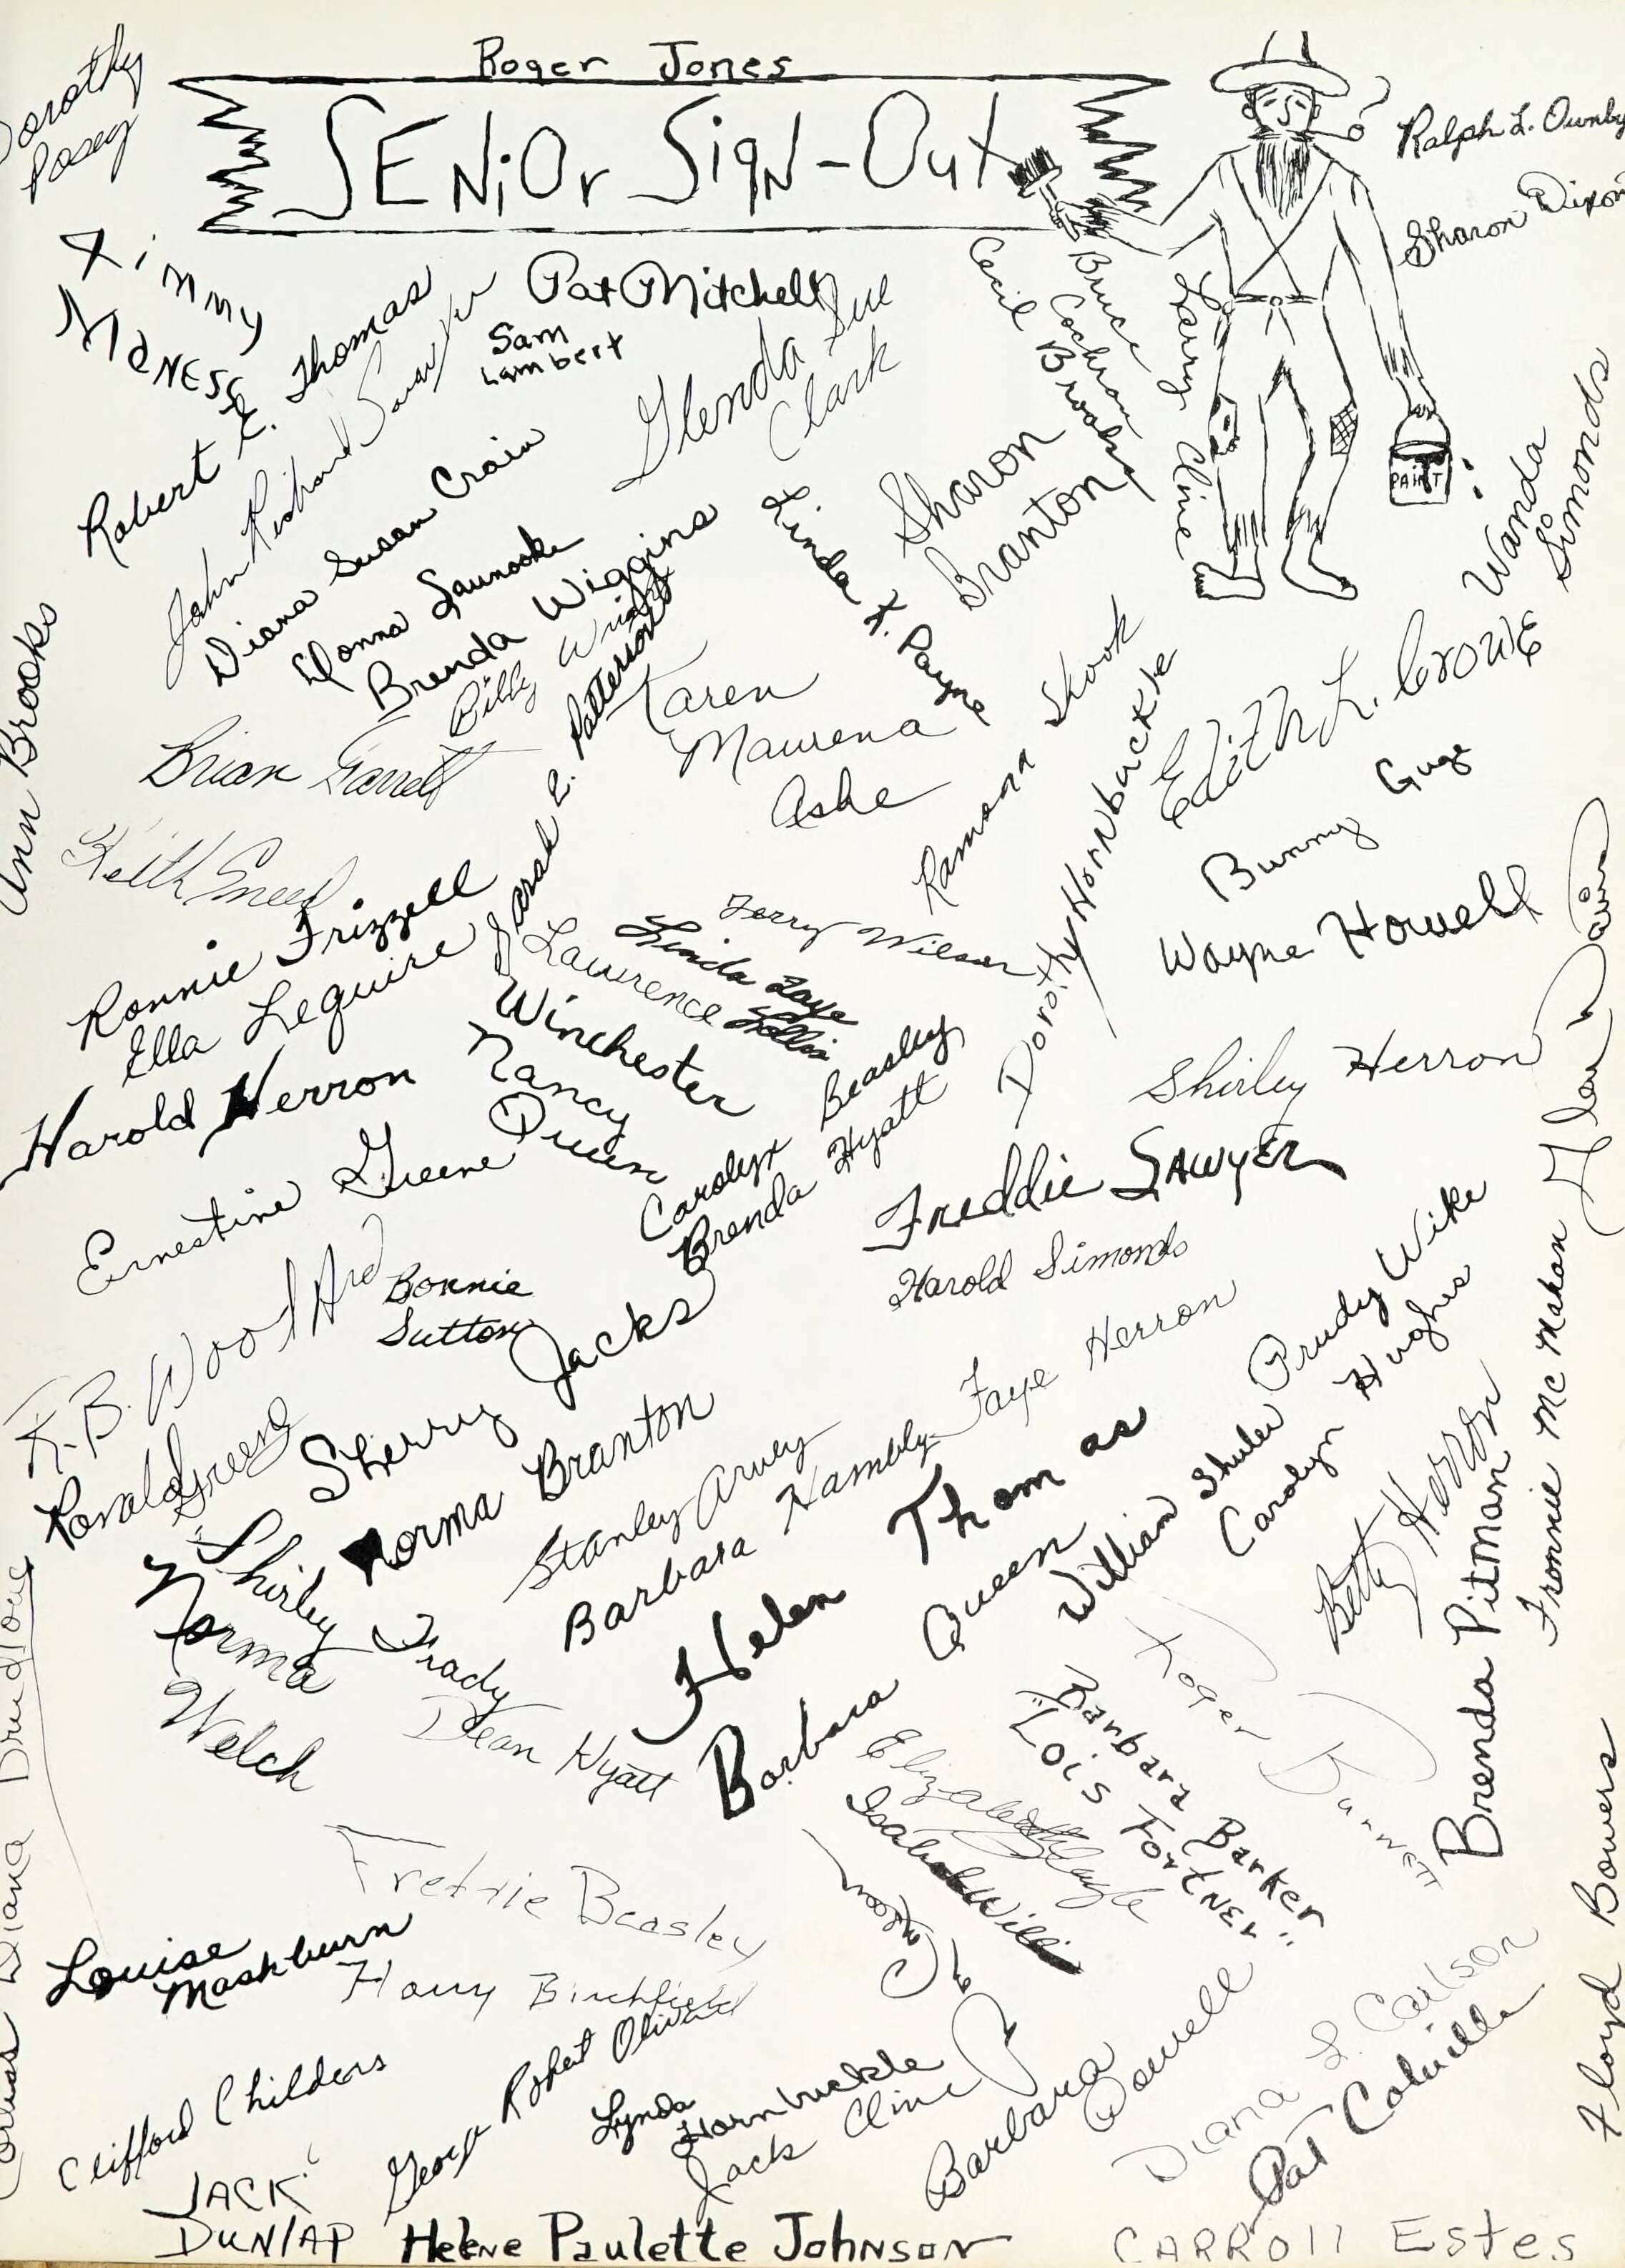 Roger Jones
SENiOr SigN-Out
Dorothy
Posey
Ralph L. Ownby
Sharon Dixon
Jimmy
Maness
Pat Mitchell
Sam
Lambert
Robert E. Thomas
John Richard Sawyer
Glenda Sue
Clark
Cecil Brooks
Bruce Cochran
Larry Cline
PAINT
Diana Susan Crain
Donna Saunooke
Brenda Wiggins
Billy Wright
Sarah E. Patterson
Sharon
Branton
Linda K. Payne
Wanda
Simonds
Ann Brooks
Karen
Maurena
Ashe
Brian Garrett
Keith Sneed
Ramona Shook
Dorothy Hornbuckle
Edith L. Crowe
Bunny Guge
Wayne Howell
Ronnie Frizzell
Ella Leguire
Harold Herron
Jerry Wilson
Linda Faye
Lawrence
Winchester
Nancy
Queen
Carolyn Beasley
Brenda Hyatt
Shirley Herron
Ernestine Greene
Freddie SAWYER
Harold Simonds
K.B. Woodard
Bonnie
Sutton
Sherry Jacks
Ronald Greene
Norma Branton
Stanley Arvey
Barbara Hambly
Faye Herron
Prudy Wike
William Shuler
Carolyn Hughes
Helen Thomas
Barbara Queen
Shirley Trady
Norma
Welch
Dean Hyatt
Betty Herron
Brenda Pitman
Fronnie McMahan
Roger Burnett
Barbara Barker
"Lois Fortner"
Elizabeth
Freddie Beasley
Louise
Mashburn
Harry Birchfield
George Robert
Floyd Bowers
Clifford Childers
Lynda
Hornbuckle
Jack Cline
Barbara
Powell
Diana L. Carlson
Pat Colville
JACK
DUNlAP
Helene Paulette Johnson
CARROll Estes